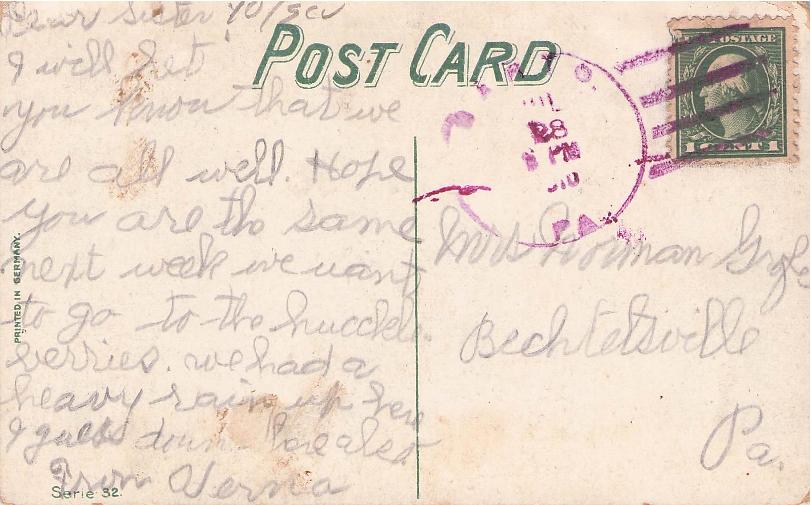 Dear Sister
I will let
you know that we
are all well. Hope
you are the same
next week we want
to go to the huccle
berries. we had a
heavy rain up here
I guess down there also
From Verna
Serie 32.
PRINTED IN GERMANY.
POST CARD
28
PM
PA
POSTAGE
1 CENT 1
Mrs Norman
Bechtelsville
Pa.